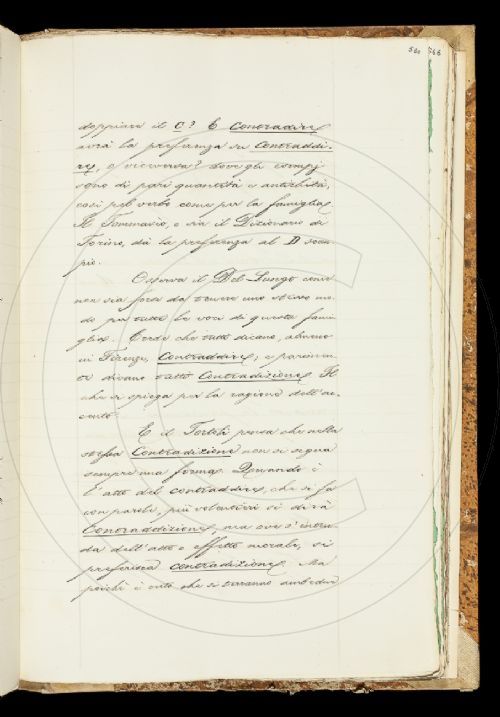 566
doppiare il C? E Contradire
avrà la preferenza su Contraddi-
re, o viceversa? dove gli esempj
sono di pari quantità e antichità,
così pel verbo come per la famiglia.
Il Tommaséo, o sia il Dizionario di
Torino, dà la preferenza al D scem-
pio.
Osserva il Del Lungo come
non sia forse da tenere uno stesso mo-
do per tutte le voci di questa fami-
glia. Crede che tutti dicano, almeno
in Firenze, Contraddire; e parimen-
ti dicano tutti Contradizione. Il
che si spiega per la ragione dell'ac-
cento.
E il Tortoli pensa che nella
stessa Contradizione non si segua
sempre una forma. Quando è
l'atto del contraddire, che si fa
con parole, più volentieri si dirà
Contraddizione, ma ove s'inten-
da dell'atto o effetto morale, si
preferisce contradizione. Ma
poichè è certo che si trovano ambedue